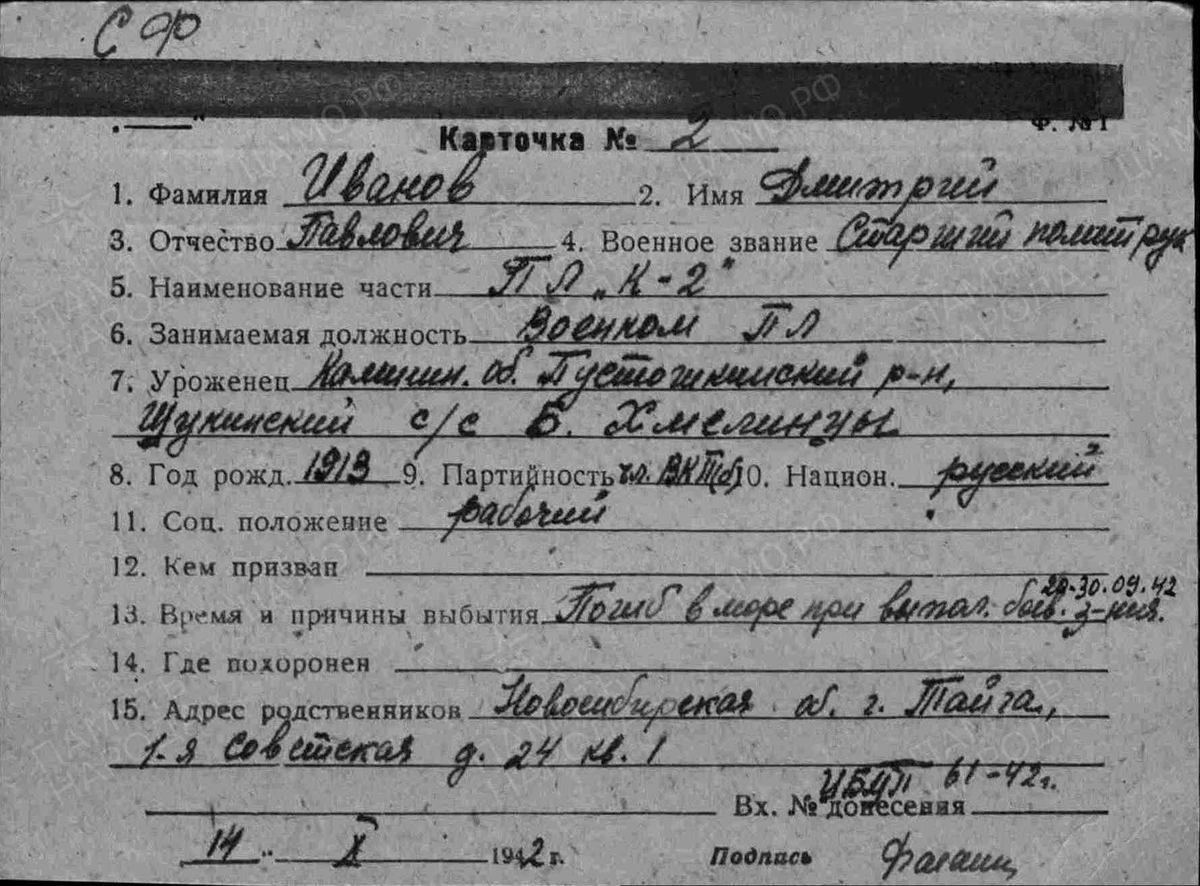 СФ
Ф. № 1
Карточка № 2
1. Фамилия Иванов 2. Имя Дмитрий
3. Отчество Павлович 4. Военное звание Старший политрук
5. Наименование части ПЛ „К-2"
6. Занимаемая должность Военком ПЛ
7. Уроженец Калинин. об. Пустошкинский р-н,
Щукинский с/с Б. Хмелинцы
8. Год рожд. 1913 9. Партийность чл. ВКП(б) 10. Национ. русский
11. Соц. положение рабочий
12. Кем призван
13. Время и причины выбытия Погиб в море при выпол. боев. з-ния. 30.09.42
14. Где похоронен
15. Адрес родственников Новосибирская об. г. Тайга,
1-я Советская д. 24 кв. 1
Вх. № донесения 61-42г.
14 X 1942 г. Подпись
ПАМО.РФ